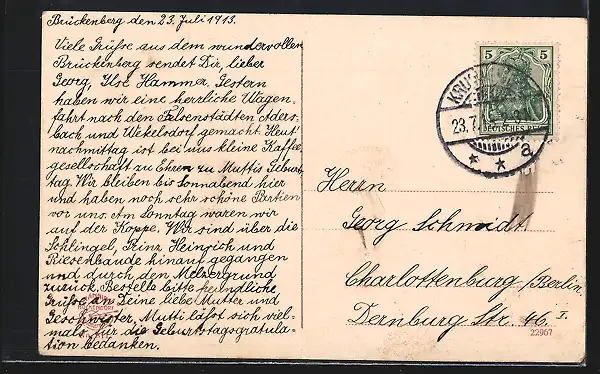 Brückenberg den 23. Juli 1913.
Viele Grüße aus dem wundervollen
Brückenberg sendet Dir, lieber
Georg, Ilse Hammer. Gestern
haben wir eine herrliche Wagen-
fahrt nach den Felsenstädten Aders-
bach und Wekelsdorf gemacht. Heut'
nachmittag ist bei uns kleine Kaffee-
gesellschaft zu Ehren zu Muttis Geburts-
tag. Wir bleiben bis Sonnabend hier
und haben noch sehr schöne Partien
vor uns. Am Sonntag waren wir
auf der Koppe. Wir sind über die
Schlingel, Prinz Heinrich und
Riesenbaude hinauf gegangen
und durch den Melzergrund
zurück. Bestelle bitte freundliche
Grüße an Deine liebe Mutter und
Geschwister, Mutti läßt sich viel-
mals für die Geburtstagsgratula-
tion bedanken.
5 5
DEUTSCHES REICH
23.7.
a
Herrn
Georg Schmidt
Charlottenburg/Berlin,
Dernburg Str. 46. I.
22967